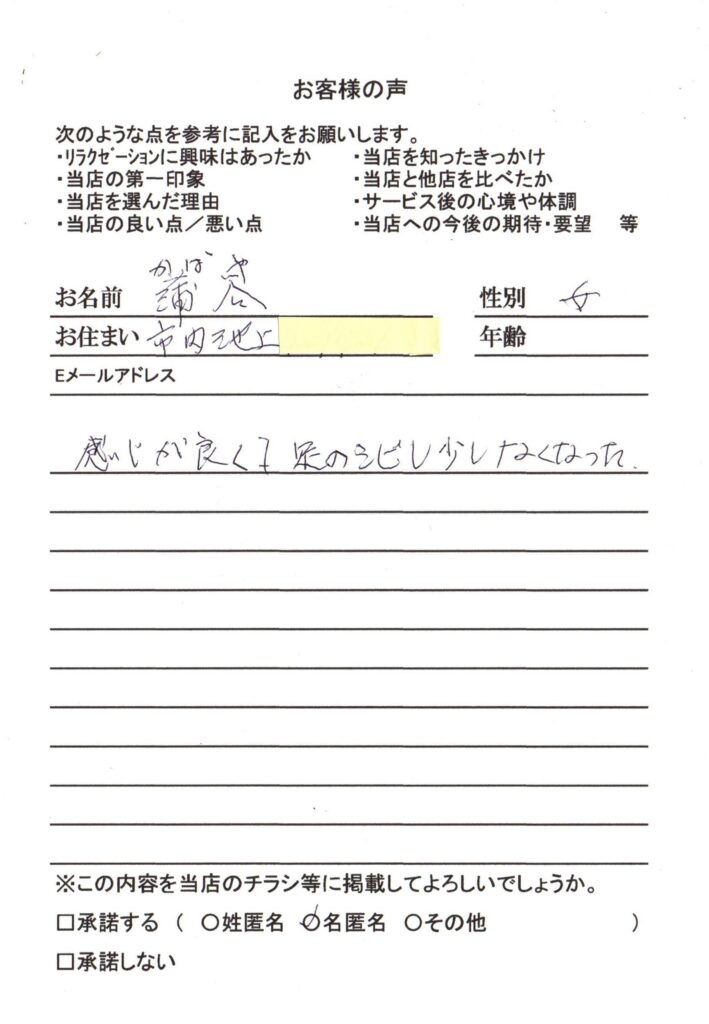 お客様の声
次のような点を参考に記入をお願いします。
・リラクゼーションに興味はあったか ・当店を知ったきっかけ
・当店の第一印象 ・当店と他店を比べたか
・当店を選んだ理由 ・サービス後の心境や体調
・当店の良い点／悪い点 ・当店への今後の期待・要望 等
かばや
お名前 蒲谷 性別 女
お住まい 市内池上 年齢
Eメールアドレス
感いじが良くて 足のシビレ少しなくなった.
※この内容を当店のチラシ等に掲載してよろしいでしょうか。
□承諾する ( ○姓匿名 ○名匿名 ○その他 )
□承諾しない